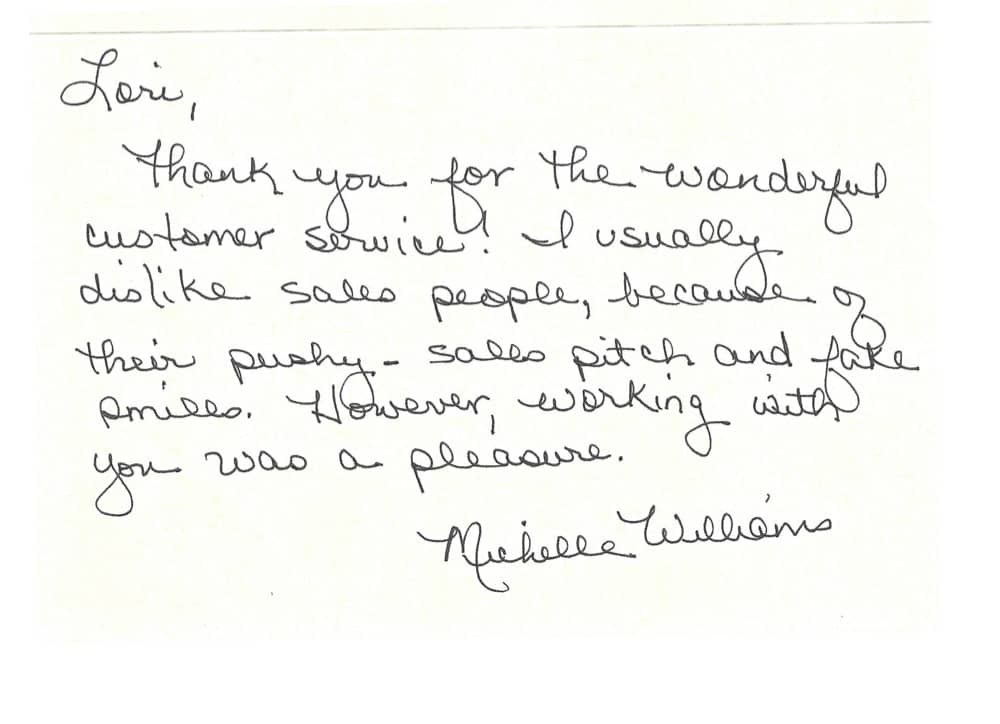 Lori,
Thank you for the wonderful
customer service! I usually
dislike sales people, because of
their pushy - sales pitch and fake
smiles. However, working with
you was a pleasure.
Michelle Williams